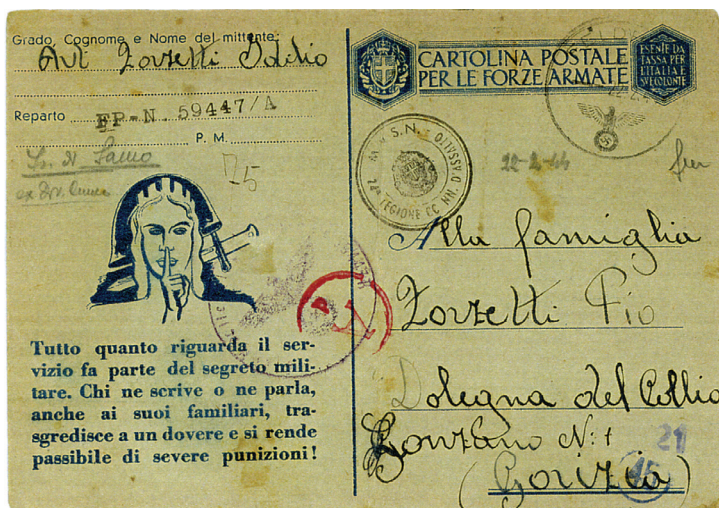 Grado, Cognome e Nome del mittente:
Art Zorzetti Idilio
Reparto FP-N. 59447/A
P. M.
Tutto quanto riguarda il ser-
vizio fa parte del segreto mili-
tare. Chi ne scrive o ne parla,
anche ai suoi familiari, tra-
sgredisce a un dovere e si rende
passibile di severe punizioni!
CARTOLINA POSTALE
PER LE FORZE ARMATE
ESENTE DA
TASSA PER
L'ITALIA E
SUE COLONIE
74ª LEGIONE CC. NN. D'ASSALTO
22-2-44
Alla famiglia
Zorzetti Pio
Dolegna del Collio
N: 1
(Gorizia)
21
45